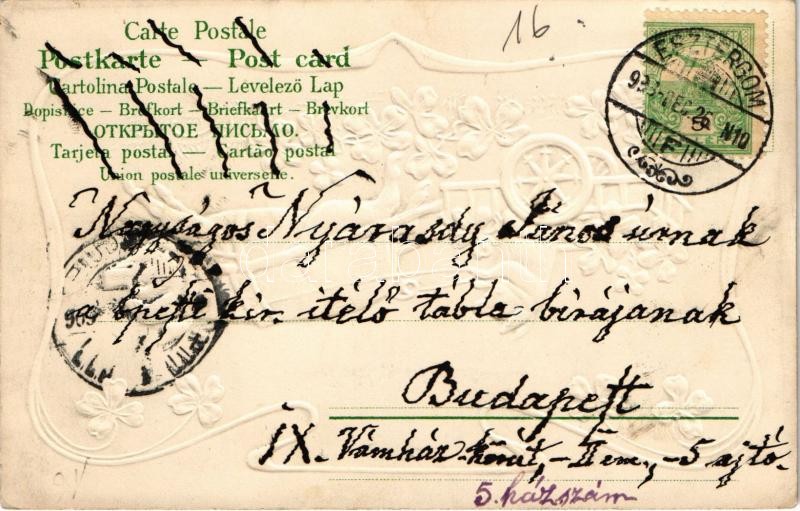 16.
Carte Postale
Postkarte — Post card
Cartolina Postale — Levelező Lap
Dopisnice — Brefkort — Briefkaart — Brevkort
ОТКРЫТОЕ ПИСЬМО.
Tarjeta postal — Cartão postal
Union postale universelle.
ESZTERGOM
Nagyságos Nyárasdy János úrnak
a bpesti kir. itélő tábla birájának
Budapest
IX. Vámház körút, – II em., – 5 ajtó.
5. házszám